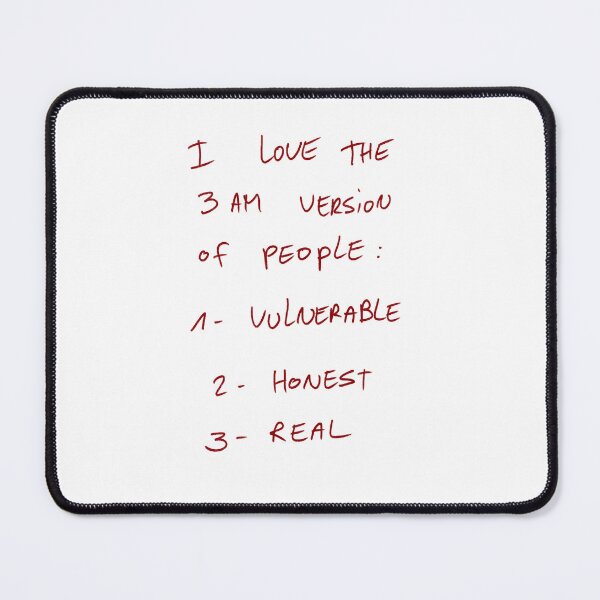 I LOVE THE
3 AM VERSiON
of PEOPLE:
1- VULNERABLE
2- HONEST
3- REAL